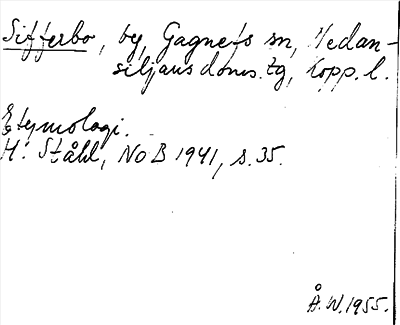 Sifferbo, by, Gagnefs sn, Nedan-
siljans doms. tg, Kopp. l.
Etymologi.
H. Ståhl, NoB 1941, s. 35.
Å. W. 1955.